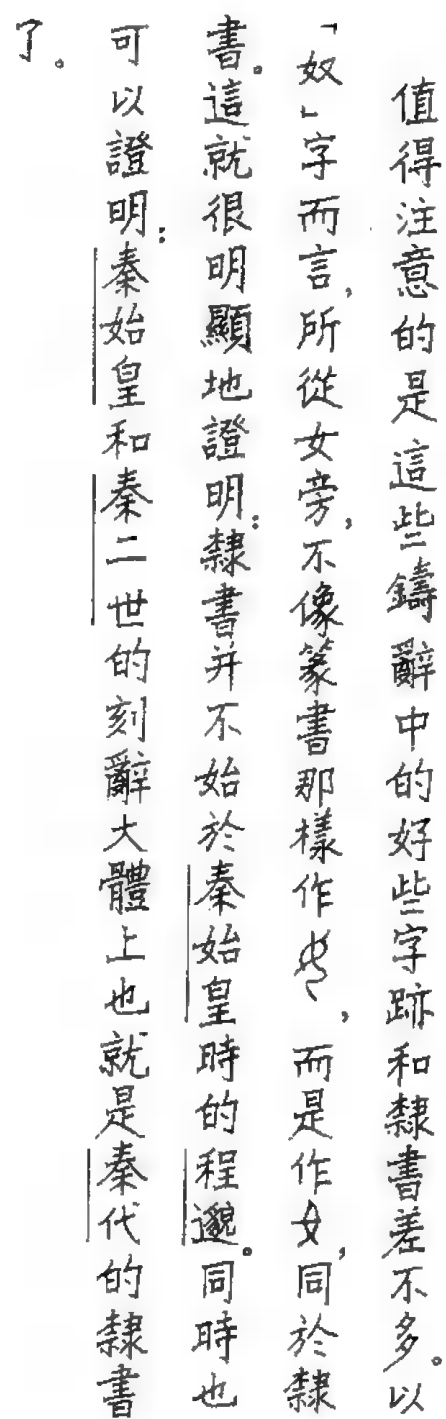 值得注意的是這些鑄辭中的好些字跡和隸書差不多。以
「奴」字而言，所從女旁，不像篆書那樣作，而是作女，同於隸
書。這就很明顯地證明：隸書并不始於秦始皇時的程邈。同時也
可以證明：秦始皇和秦二世的刻辭大體上也就是秦代的隸書
了。